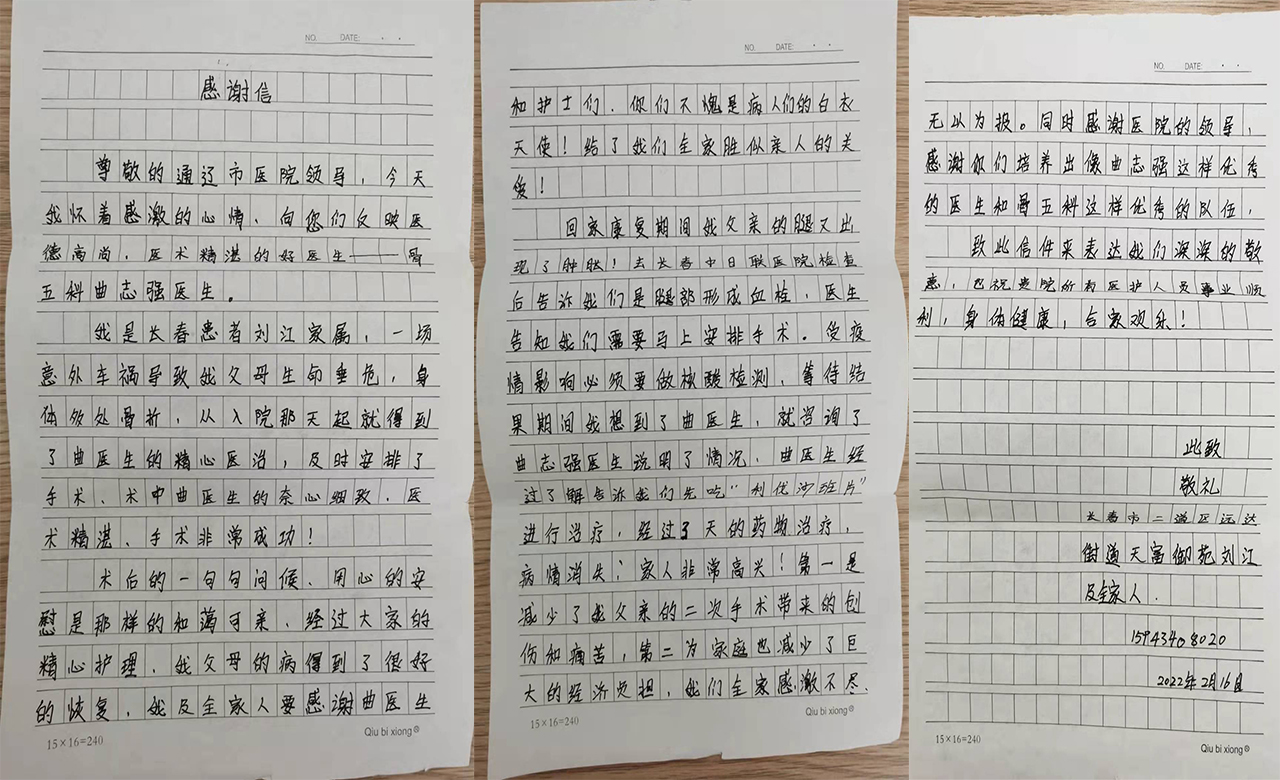 NO. DATE: · ·
感谢信
尊敬的通辽市医院领导，今天
我怀着感激的心情、向您们反映医
德高尚，医术精湛的好医生——骨
五科曲志强医生。
我是长春患者刘江家属，一场
意外车祸导致我父母生命垂危，身
体多处骨折，从入院那天起就得到
了曲医生的精心医治，及时安排了
手术、术中曲医生的奈心细致、医
术精湛、手术非常成功！
术后的一句句问候、用心的安
慰是那样的和蔼可亲、经过大家的
精心护理、我父母的病得到了很好
的恢复，我及全家人要感谢曲医生
15×16=240
Qiu bi xiong®
NO. DATE: · ·
和护士们、你们不愧是病人们的白衣
天使！给了我们全家胜似亲人的关
爱！
回家康复期间我父亲的腿又出
现了肿胀！去长春中日联医院检查
后告诉我们是腿部形成血栓，医生
告知我们需要马上安排手术。受疫
情影响必须要做核酸检测、等待结
果期间我想到了曲医生，就咨询了
曲志强医生说明了情况、曲医生经
过了解告诉我们先吃“利伐沙班片”
进行治疗，经过3天的药物治疗，
病情消失；家人非常高兴！第一是
减少了我父亲的二次手术带来的创
伤和痛苦，第二为家庭也减少了巨
大的经济负担，我们全家感激不尽、
15×16=240
Qiu bi xiong®
NO. DATE: · ·
无以为报。同时感谢医院的领导，
感谢你们培养出像曲志强这样优秀
的医生和骨五科这样优秀的队伍
致此信件来表达我们深深的敬
意，也祝贵院所有医护人员事业顺
利，身体健康，合家欢乐！
此致
敬礼
长春市二道区远达
街道天富御苑刘江
及全家人．
15943408020
2022年2月16日
15×16=240
Qiu bi xiong®